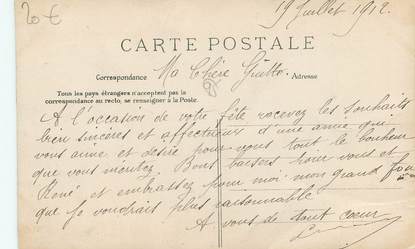 20 €
19 Juillet 1912.
CARTE POSTALE
Correspondance Ma Chère Adresse
Tous les pays étrangers n'acceptent pas la
correspondance au recto, se renseigner à la Poste.
A l'occasion de votre fête recevez les souhaits
bien sincères et affectueux d'une amie qui
vous aime et désire pour vous tout le bonheur
que vous méritez. Bons baisers pour vous et
René et embrassez pour moi mon grand fou
que je voudrais plus raisonnable
A vous de tout cœur